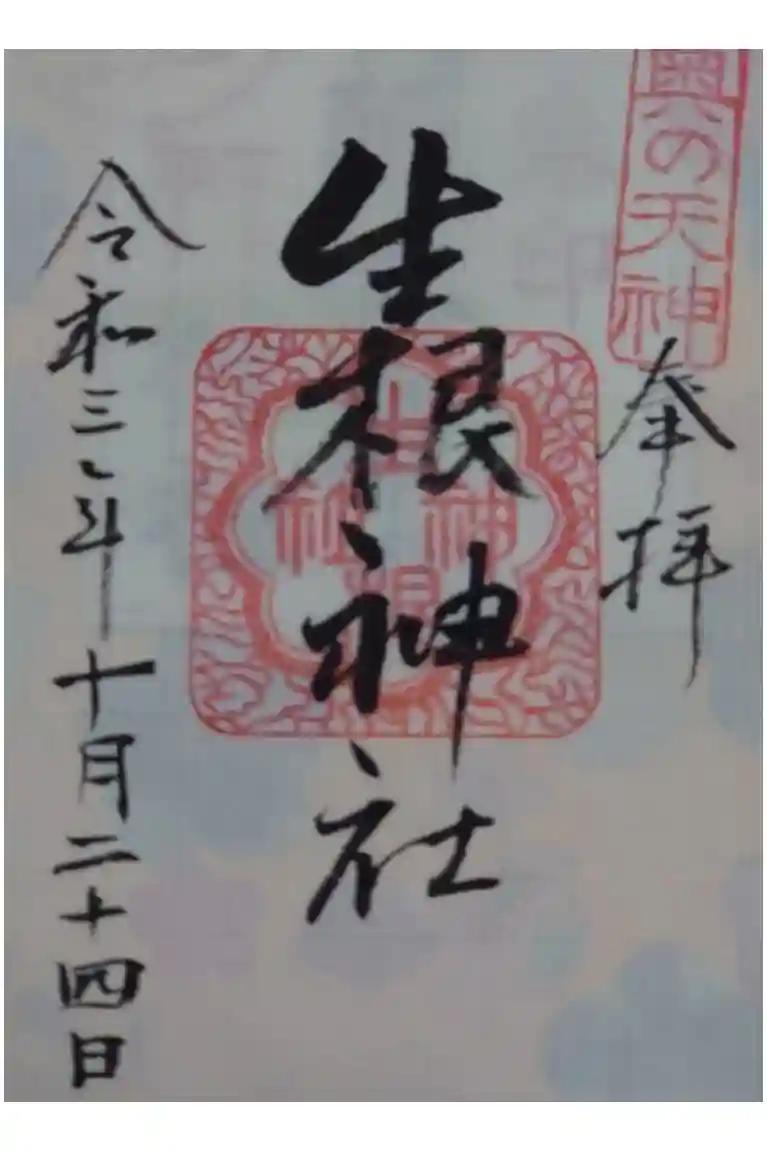 奥の天神
奉拝
生根神社
生根神社
令和三年十月二十四日